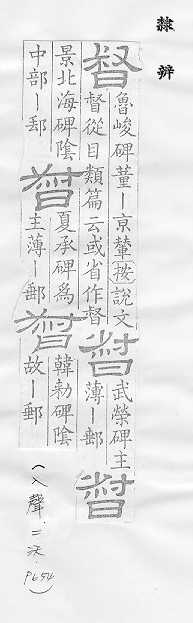 隸辨
督
魯峻碑董ー京輦按說文
督從目類篇云或省作督
督
武榮碑主
薄ー郵
督
景北海碑陰
中部ー郵
督
夏承碑爲
主薄ー郵
督
韓勑碑陰
故ー郵
(入聲.二沃.P654)